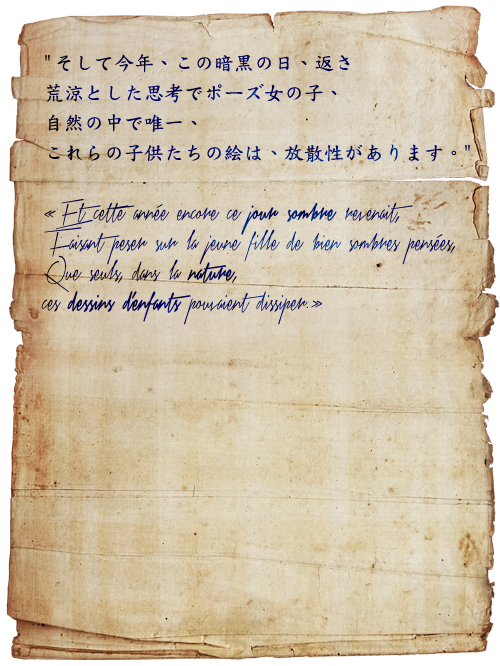 "そして今年、この暗黒の日、返さ
荒涼とした思考でポーズ女の子、
自然の中で唯一、
これらの子供たちの絵は、放散性があります。"
« Et cette année encore ce jour sombre revenait,
Faisant peser sur la jeune fille de bien sombres pensées,
Que seuls, dans la nature,
ces dessins d'enfants pouvaient dissiper. »